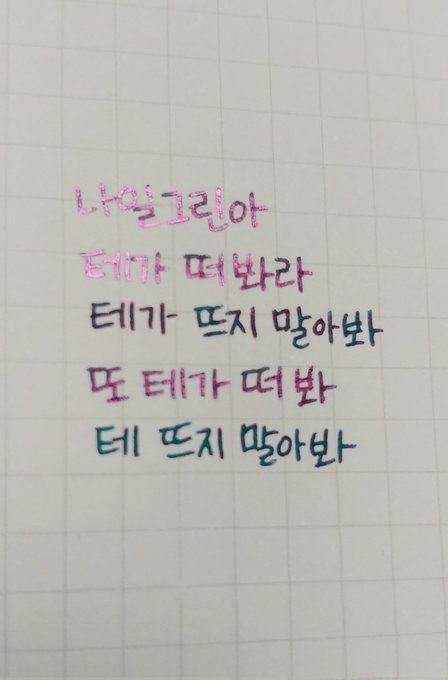 나일그린아
테가 떠봐라
테가 뜨지 말아봐
또 테가 떠봐
테 뜨지 말아봐